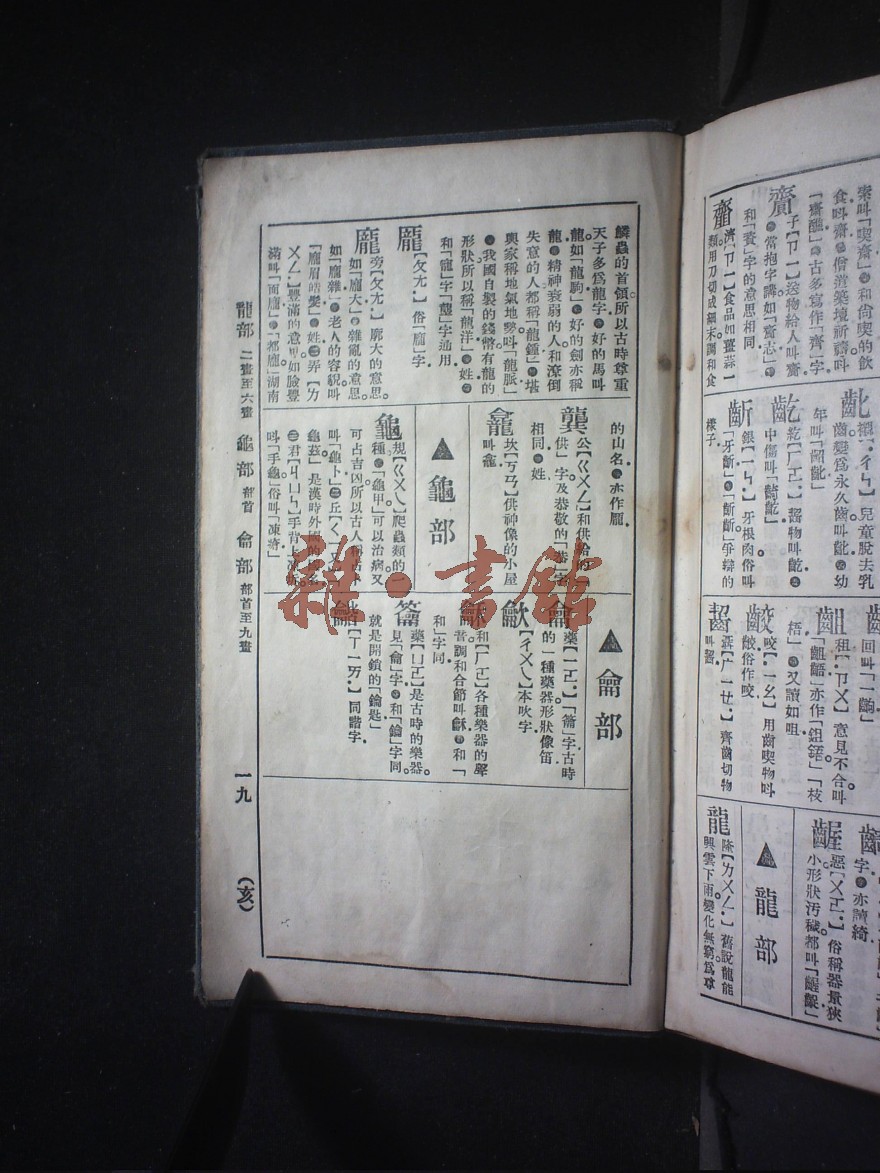 素叫「喫齋」●和尙喫的飮
食叫齋●僧道築壇祈禱叫
「齋醮」●古多寫作「齊」字
齎
子【ㄗㄧ】送物給人叫齎
●當抱字講如「齎志」●
和「資」字的意思相同
濟【ㄗㄧ】食品如薑蒜一
類用刀切成細末調和食
齔
襯【ㄔㄣ】兒童脫去乳
齒變爲永久齒叫齔●幼
年叫「齠齔」
齕
紇【ㄏㄜ】齧物叫齕●
中傷叫「齮齕」
齗
銀【ㄧㄣ】牙根肉俗叫
「牙齗」●「齗齗」爭辯的
樣子
回叫「一齣」
齟
租【ㄗㄨ】意見不合叫
「齟齬」亦作「鉏鋙」「枝
梧」●又讀如咀
齩
咬【ㄧㄠ】用齒喫物叫
齩俗作咬
齧
【ㄧㄝ】齊齒切物
叫齧
字●亦讀綺
齷
惡【ㄨㄛ】俗稱器量狹
小形狀汚穢都叫「齷齪」
▲龍部
龍
隆【ㄌㄨㄥ】舊說龍能
興雲下雨變化無窮爲
鱗蟲的首領所以古時尊重
天子多爲龍字●好的馬叫
龍如「龍駒」●好的劍亦稱
龍●精神衰弱的人和潦倒
失意的人都稱「龍鍾」●堪
輿家稱地氣地勢叫「龍脈」
●我國自製的錢幣有龍的
形狀所以稱「龍洋」●姓●
和「寵」字「壟」字通用
龎
【ㄆㄤ】俗「龐」字
龐
旁【ㄆㄤ】廓大的意思
如「龐大」●雜亂的意思
如「龐雜」●老人的容貌叫
「龐眉皓髮」●姓㊁弄【ㄌ
ㄨㄥ】豐滿的意思如臉豐
滿叫「面龐」●「都龐」湖南
的山名●亦作龎
龔
公【ㄍㄨㄥ】和供給的「
供」字及恭敬的「恭」字
相同●姓
龕
坎【ㄎㄢ】供神像的小屋
叫龕
▲龜部
龜
規【ㄍㄨㄟ】爬蟲類的一
種●「龜甲」可以治病又
可占吉凶所以古人稱占卜
叫「龜卜」㊁丘【ㄑㄧㄡ】「
龜茲」是漢時外國的國名
㊂君【ㄐㄩㄣ】手背上凍裂
叫「手龜」俗叫「凍瘃」
▲龠部
龠
藥【ㄧㄛ】「籥」字古時
的一種樂器形狀像笛
龡
【ㄔㄨㄟ】本吹字
龢
和【ㄏㄛ】各種樂器的聲
音調和合節叫龢●和「
和」字同
籥
藥【ㄩㄛ】是古時的樂器
見「龠」字●和「鑰」字同
就是開鎖的「鑰匙」
龤
【ㄒㄧㄞ】同諧字
龍部 二畫至六畫 龜部 部首 龠部 部首至九畫 一九 (亥)
雜·書館